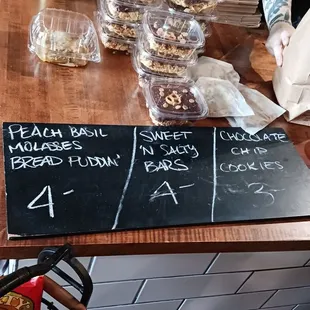 PEACH BASIL
MOLASSES
BREAD PUDDIN'
4-
SWEET
'N SALTY
BARS
4-
CHOCOLATE
CHIP
COOKIES
3-